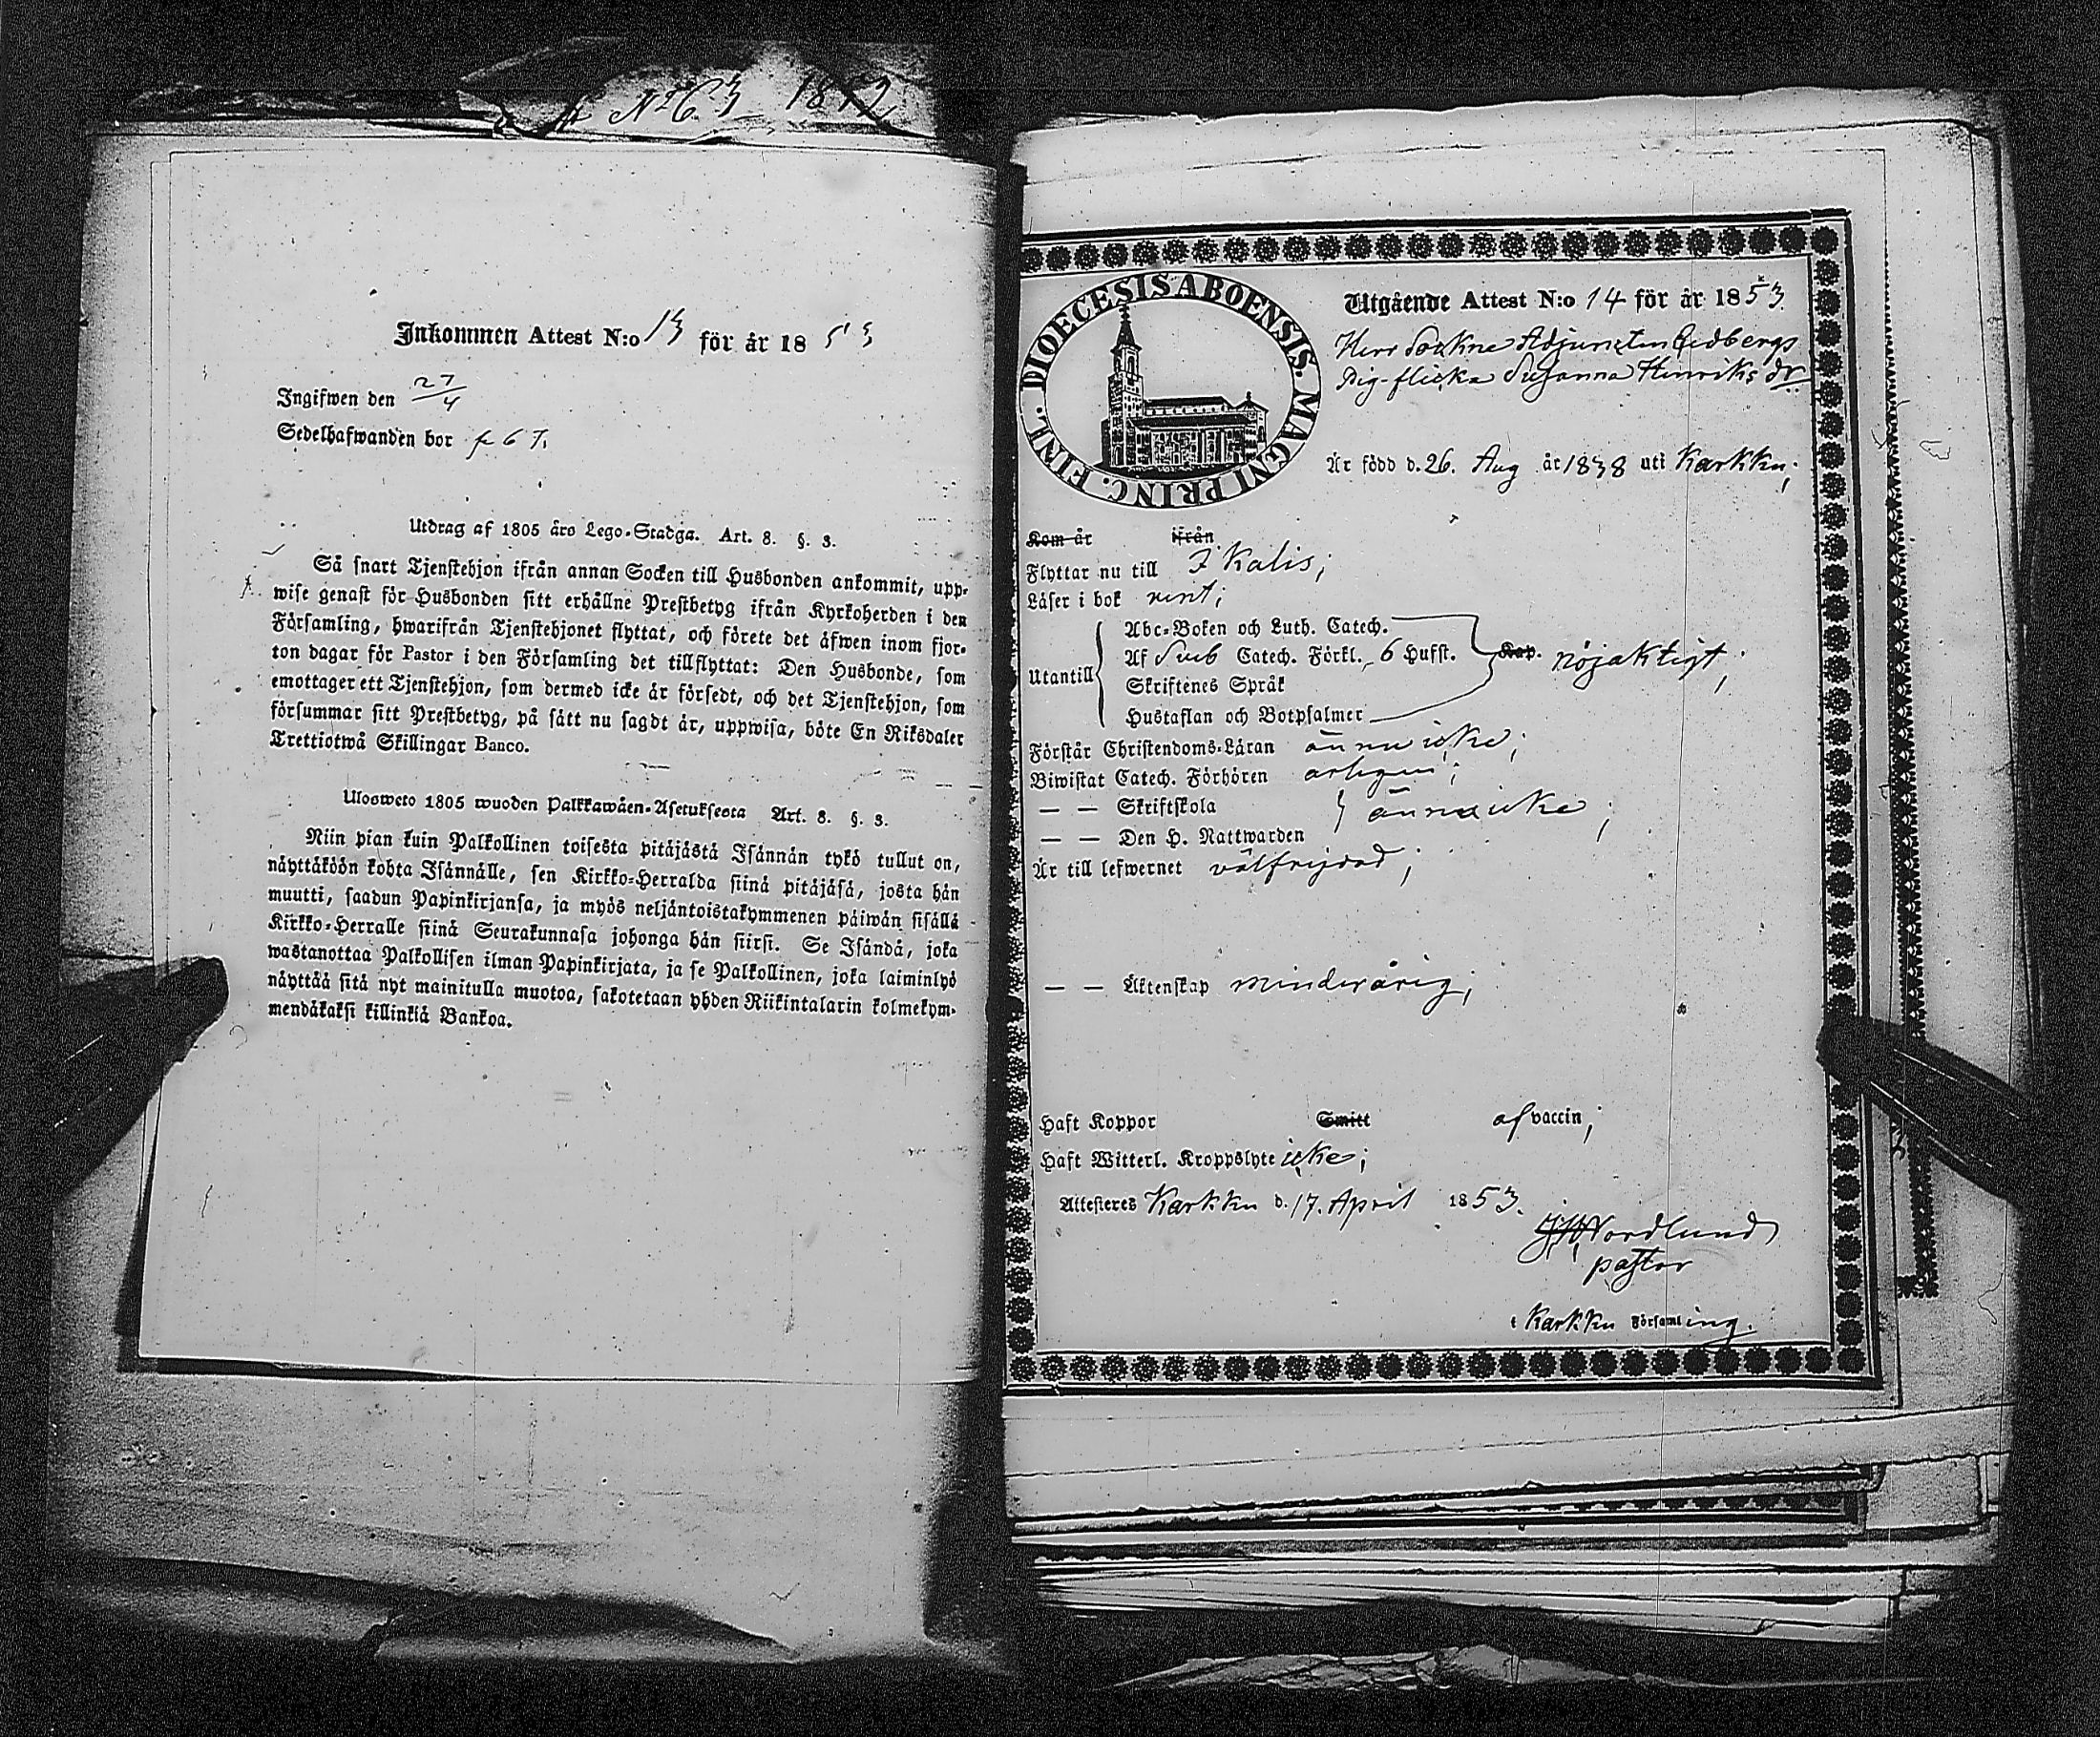 Nº 63 18
Inkommen Attest N:o 13 för år 1853
Ingifwen den 27/4
Sedelhafwanden bor p 67.
Utdrag af 1805 års Lego-Stadga. Art. 8. §. 3.
Så snart Tjenstehjon ifrån annan Socken till Husbonden ankommit, upp-
wise genast för Husbonden sitt erhållne Prestbetyg ifrån Kyrkoherden i den
Församling, hwarifrån Tjenstehjonet flyttat, och förete det äfwen inom fjor-
ton dagar för Pastor i den Församling det tillflyttat: Den Husbonde, som
emottager ett Tjenstehjon, som dermed icke är försedt, och det Tjenstehjon, som
försummar sitt Prestbetyg, på sätt nu sagdt är, uppwisa, böte En Riksdaler
Trettiotwå Skillingar Banco.
Ulosweto 1805 wuoden Palkkawäen-Asetuksesta Art. 8. §. 3.
Niin pian kuin Palkollinen toisesta pitäjästä Isännän tykö tullut on,
näyttäköön kohta Isännälle, sen Kirkko-Herralda siinä pitäjäsä, josta hän
muutti, saadun Papinkirjansa, ja myös neljäntoistakymmenen päiwän sisällä
Kirkko-Herralle siinä Seurakunnasa johonga hän siirsi. Se Isändä, joka
wastanottaa Palkollisen ilman Papinkirjata, ja se Palkollinen, joka laiminlyö
näyttää sitä nyt mainitulla muotoa, sakotetaan yhden Riikintalarin kolmekym-
mendäkaksi killinkiä Bankoa.
DIOECESIS ABOENSIS. MAGNI PRINC. FINL.
Utgående Attest N:o 14 för år 1853
Herr Sockne Adjuncten Cedbergs
Pig-flicka Susanna Henriks dr
Är född d. 26. Aug år 1838 uti Karkku;
Kom år ifrån
Flyttar nu till Ikalis;
Läser i bok rent;
Abc-Boken och Luth. Catech.
Utantill Af Sveb Catech. Förkl. 6 Hufst. Kap. nöjaktigt;
Skriftenes Språk
Hustaflan och Botpsalmer
Förstår Christendoms-Läran ännu icke;
Biwistat Catech. Förhören årligen;
— — Skriftskola ännu icke;
— — Den H. Nattwarden
Är till lefwernet välfrejdad;
— — Äktenskap minderårig;
Haft Koppor Smitt af vaccin;
Haft Witterl. Kroppslyte icke;
Attesteres Karkku d. 17. April 1853.
Nordlund
pastor
i Karkku Församling.